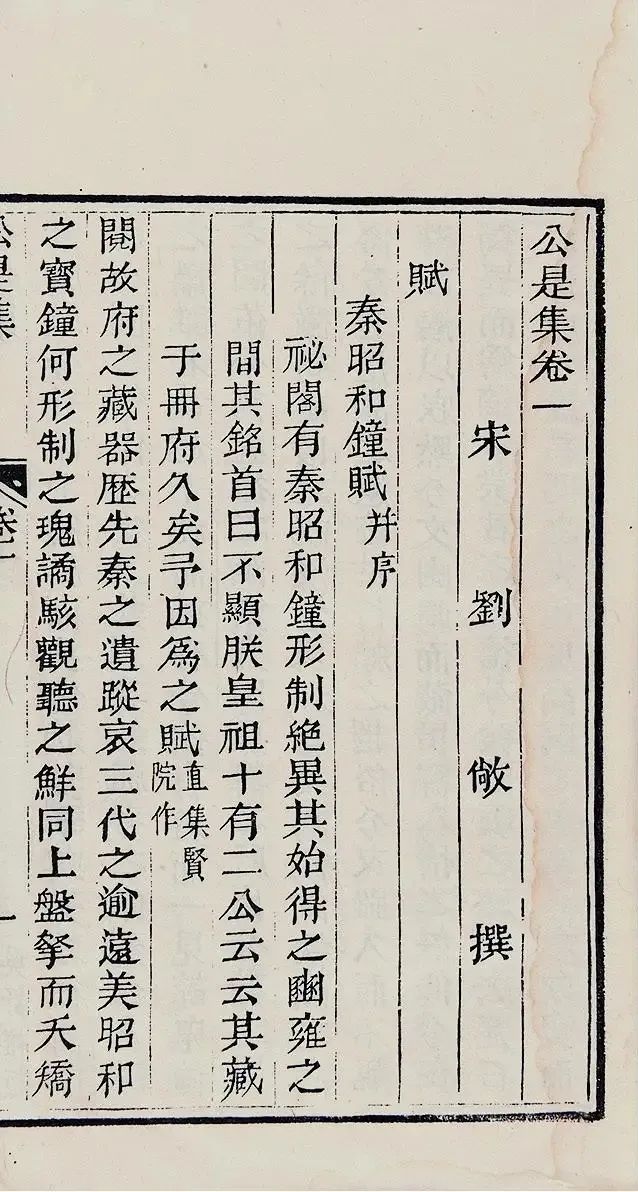 公是集卷一
宋劉敞撰
賦
秦昭和鐘賦并序
祕閣有秦昭和鐘形制絶異其始得之豳雍之
間其銘首曰不顯朕皇祖十有二公云云其藏
于冊府久矣予因爲之賦直集賢院作
閱故府之藏器歴先秦之遺蹤哀三代之逾遠美昭和
之寶鐘何形制之瑰譎駭觀聽之鮮同上盤拏而夭矯
公是集
卷一
一